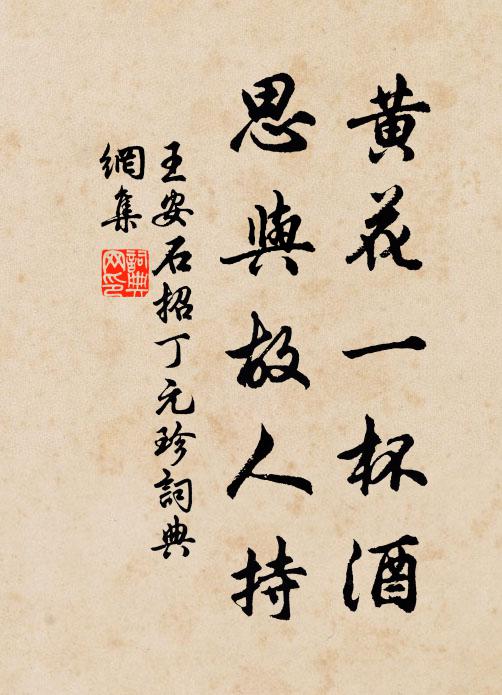 黄花一杯酒
思與故人持
王安石招丁元珍詞典
網集
詞典网印